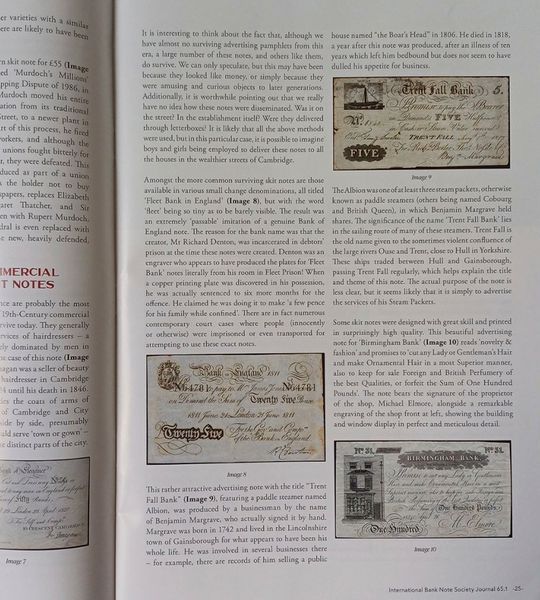 er varieties with a similar
ere are likely to have been
rn skit note for £55 (Image
ed 'Murdoch's Millions'
pping Dispute of 1986, in
Murdoch moved his entire
ation from its traditional
treet, to a newer plant in
rt of this process, he fired
orkers, and although the
unions fought bitterly for
r, they were defeated. This
duced as part of a union
s the holder not to buy
spapers, replaces Elizabeth
garet Thatcher, and Sir
en with Rupert Murdoch.
dral is even replaced with
e new, heavily defended,
MMERCIAL
T NOTES
nce are probably the most
19th-Century commercial
rvive today. They generally
rvices of hairdressers – a
ely dominated by men to
he case of this note (Image
eagan was a seller of beauty
hairdresser in Cambridge
4 until his death in 1846.
des the coats of arms of
of Cambridge and City
side by side, presumably
uld serve 'town or gown' –
e distinct parts of the city.
Image 7
It is interesting to think about the fact that, although we
have almost no surviving advertising pamphlets from this
era, a large number of these notes, and others like them,
do survive. We can only speculate, but this may have been
because they looked like money, or simply because they
were amusing and curious objects to later generations.
Additionally, it is worthwhile pointing out that we really
have no idea how these notes were disseminated. Was it on
the street? In the establishment itself? Were they delivered
through letterboxes? It is likely that all the above methods
were used, but in this particular case, it is possible to imagine
boys and girls being employed to deliver these notes to all
the houses in the wealthier streets of Cambridge.
Amongst the more common surviving skit notes are those
available in various small change denominations, all titled
'Fleet Bank in England' (Image 8), but with the word
'fleet' being so tiny as to be barely visible. The result was
an extremely 'passable' imitation of a genuine Bank of
England note. The reason for the bank name was that the
creator, Mr Richard Denton, was incarcerated in debtors'
prison at the time these notes were created. Denton was an
engraver who appears to have produced the plates for 'Fleet
Bank' notes literally from his room in Fleet Prison! When
a copper printing plate was discovered in his possession,
he was actually sentenced to six more months for the
offence. He claimed he was doing it to make 'a few pence
for his family while confined'. There are in fact numerous
contemporary court cases where people (innocently
or otherwise) were imprisoned or even transported for
attempting to use these exact notes.
Bank in England 1811
No 64781
No 64781
on Demand the Sum of Twenty Five
1811 June 21 London 21 June 1811
Twenty Five
For the Govr and Compa
of the Bank in England
Image 8
This rather attractive advertising note with the title "Trent
Fall Bank" (Image 9), featuring a paddle steamer named
Albion, was produced by a businessman by the name
of Benjamin Margrave, who actually signed it by hand.
Margrave was born in 1742 and lived in the Lincolnshire
town of Gainsborough for what appears to have been his
whole life. He was involved in several businesses there
– for example, there are records of him selling a public
house named "the Boar's Head" in 1806. He died in 1818,
a year after this note was produced, after an illness of ten
years which left him bedbound but does not seem to have
dulled his appetite for business.
Trent Fall Bank 5.
Promise to pay the Bearer
on Demand FIVE
TRENT FALL
FIVE
Image 9
The Albion was one of at least three steam packets, otherwise
known as paddle steamers (others being named Cobourg
and British Queen), in which Benjamin Margrave held
shares. The significance of the name 'Trent Fall Bank' lies
in the sailing route of many of these steamers. Trent Fall is
the old name given to the sometimes violent confluence of
the large rivers Ouse and Trent, close to Hull in Yorkshire.
These ships traded between Hull and Gainsborough,
passing Trent Fall regularly, which helps explain the title
and theme of this note. The actual purpose of the note is
less clear, but it seems likely that it is simply to advertise
the services of his Steam Packets.
Some skit notes were designed with great skill and printed
in surprisingly high quality. This beautiful advertising
note for 'Birmingham Bank' (Image 10) reads 'novelty &
fashion' and promises to 'cut any Lady or Gentleman's Hair
and make Ornamental Hair in a most Superior manner,
also to keep for sale Foreign and British Perfumery of
the best Qualities, or forfeit the Sum of One Hundred
Pounds'. The note bears the signature of the proprietor
of the shop, Michael Elmore, alongside a remarkable
engraving of the shop front at left, showing the building
and window display in perfect and meticulous detail.
No 31.
No 31.
BIRMINGHAM BANK.
One Hundred Pounds
One Hundred
M. Elmore
Image 10
International Bank Note Society Journal 65.1 -25-